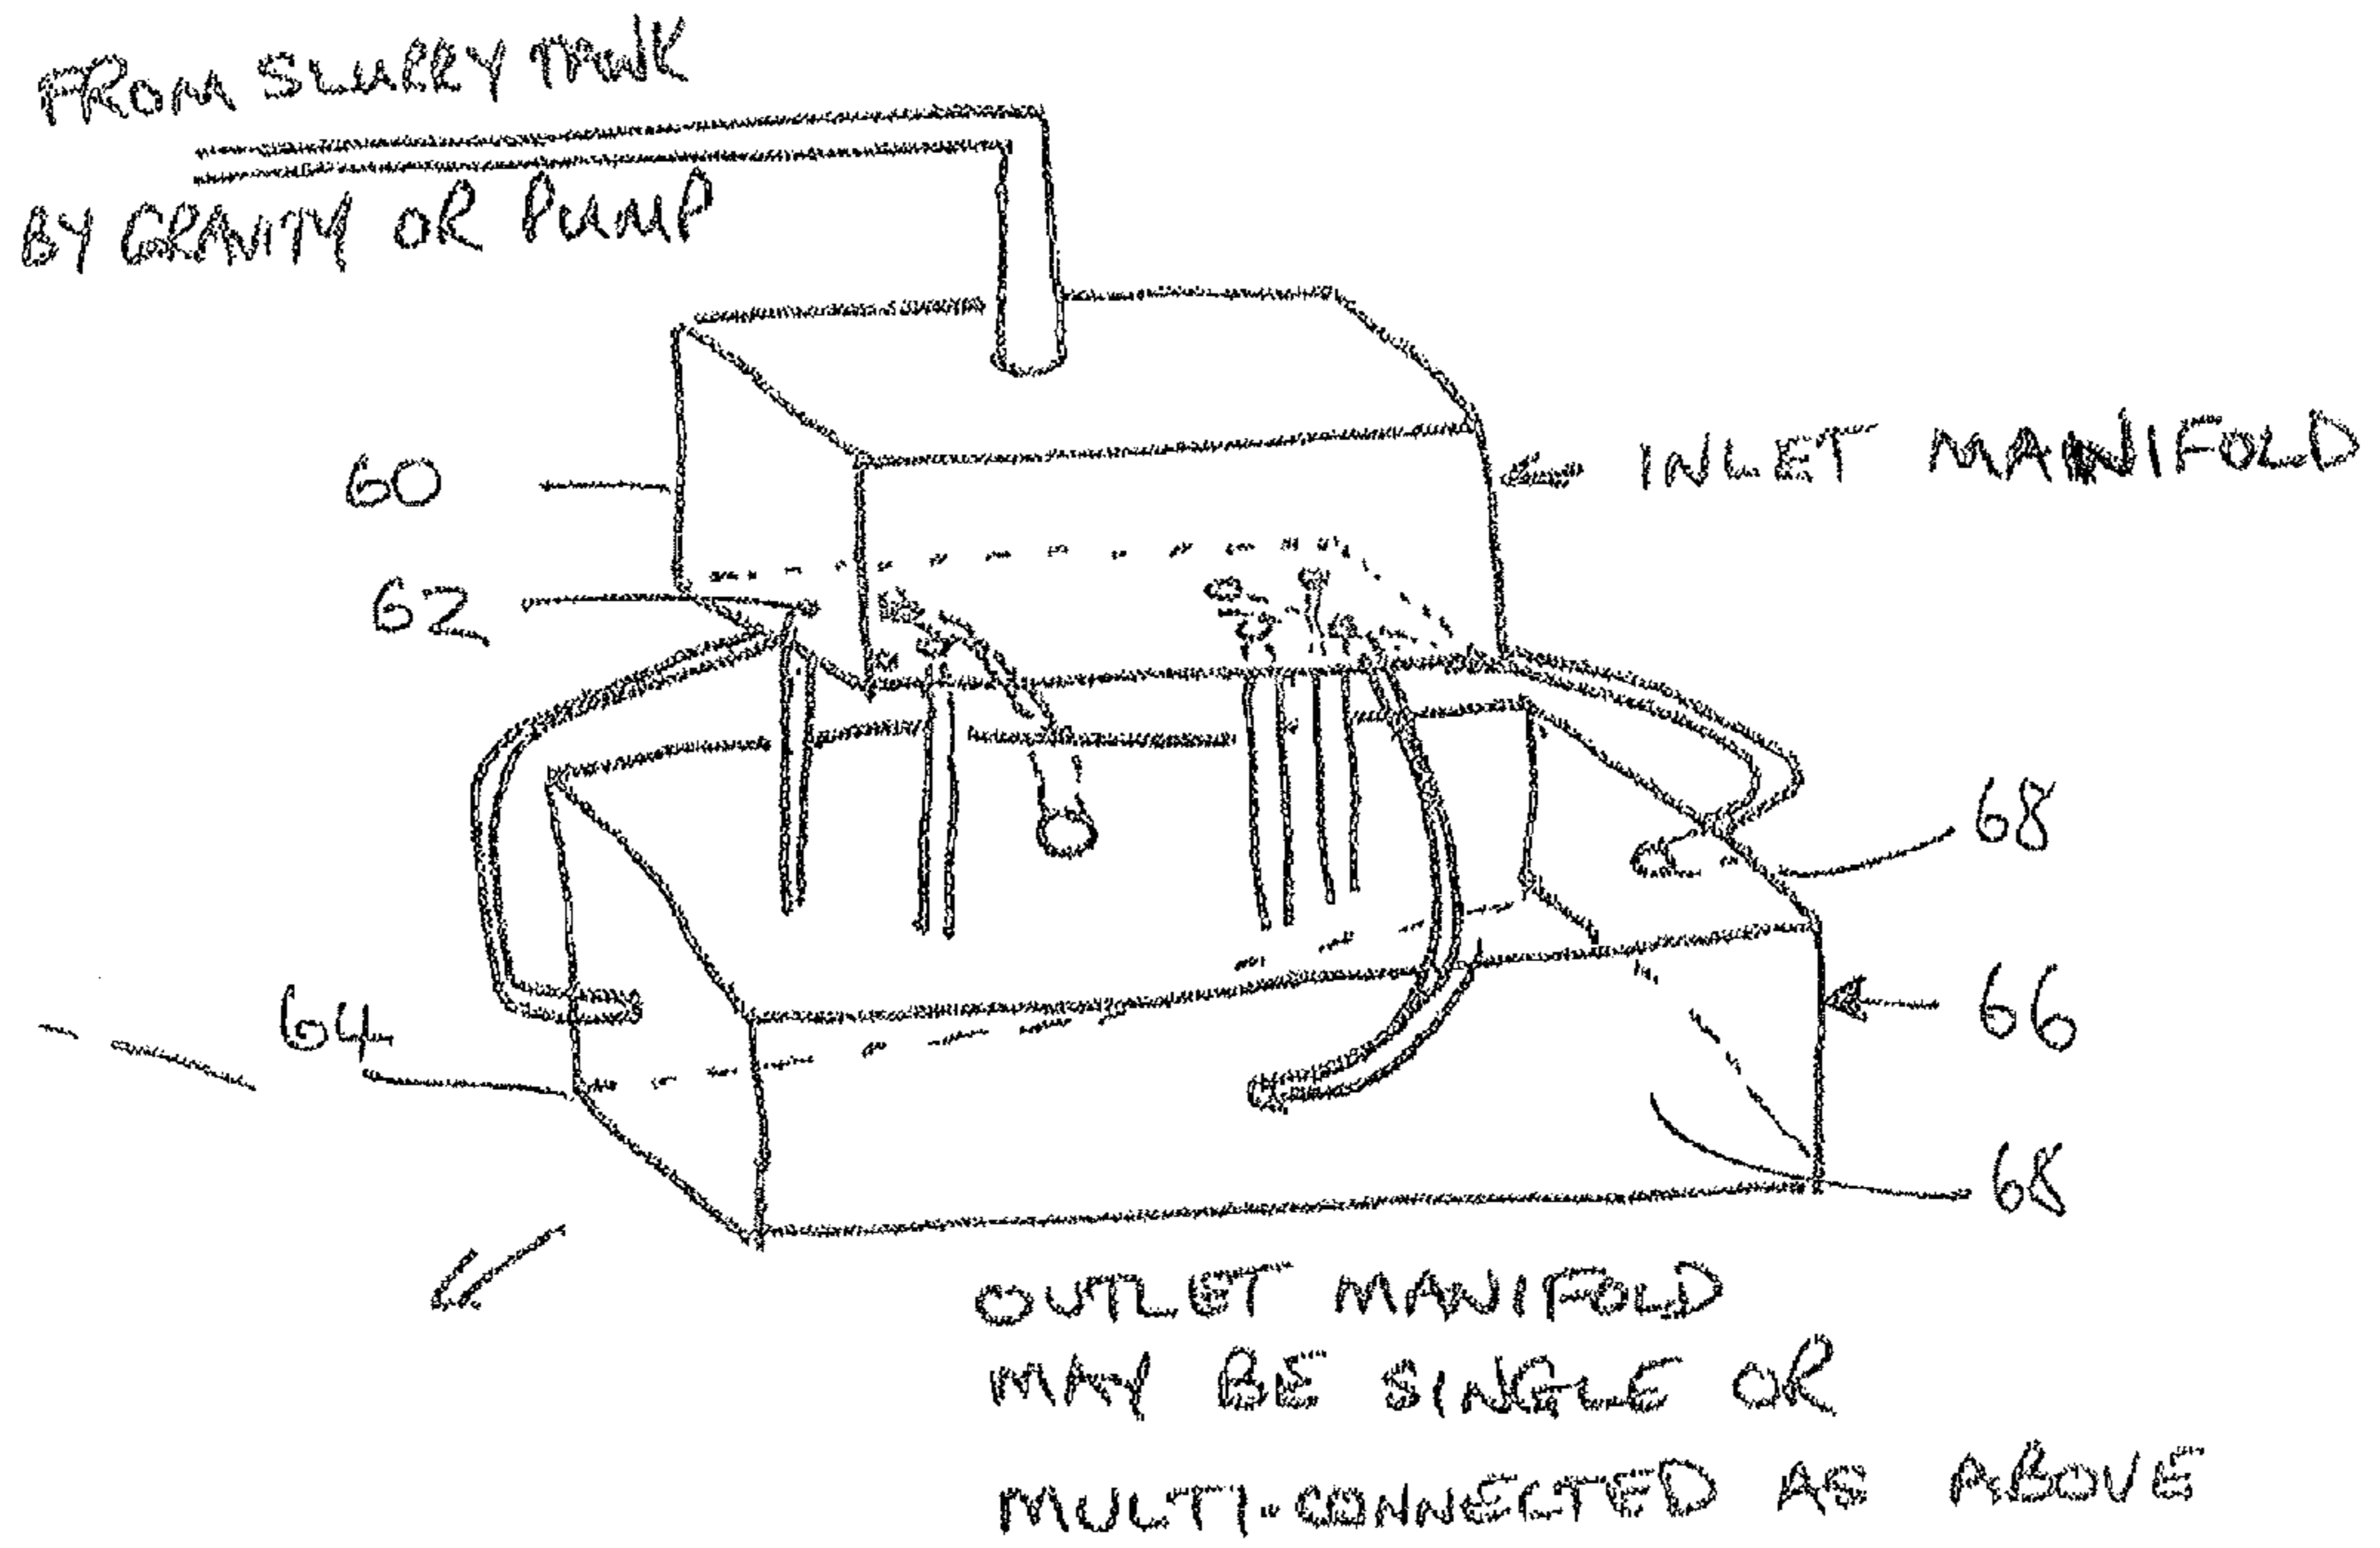 FROM SLURRY TANK
BY GRAVITY OR PUMP
INLET MANIFOLD
60
62
68
64
66
68
OUTLET MANIFOLD
MAY BE SINGLE OR
MULTI-CONNECTED AS ABOVE